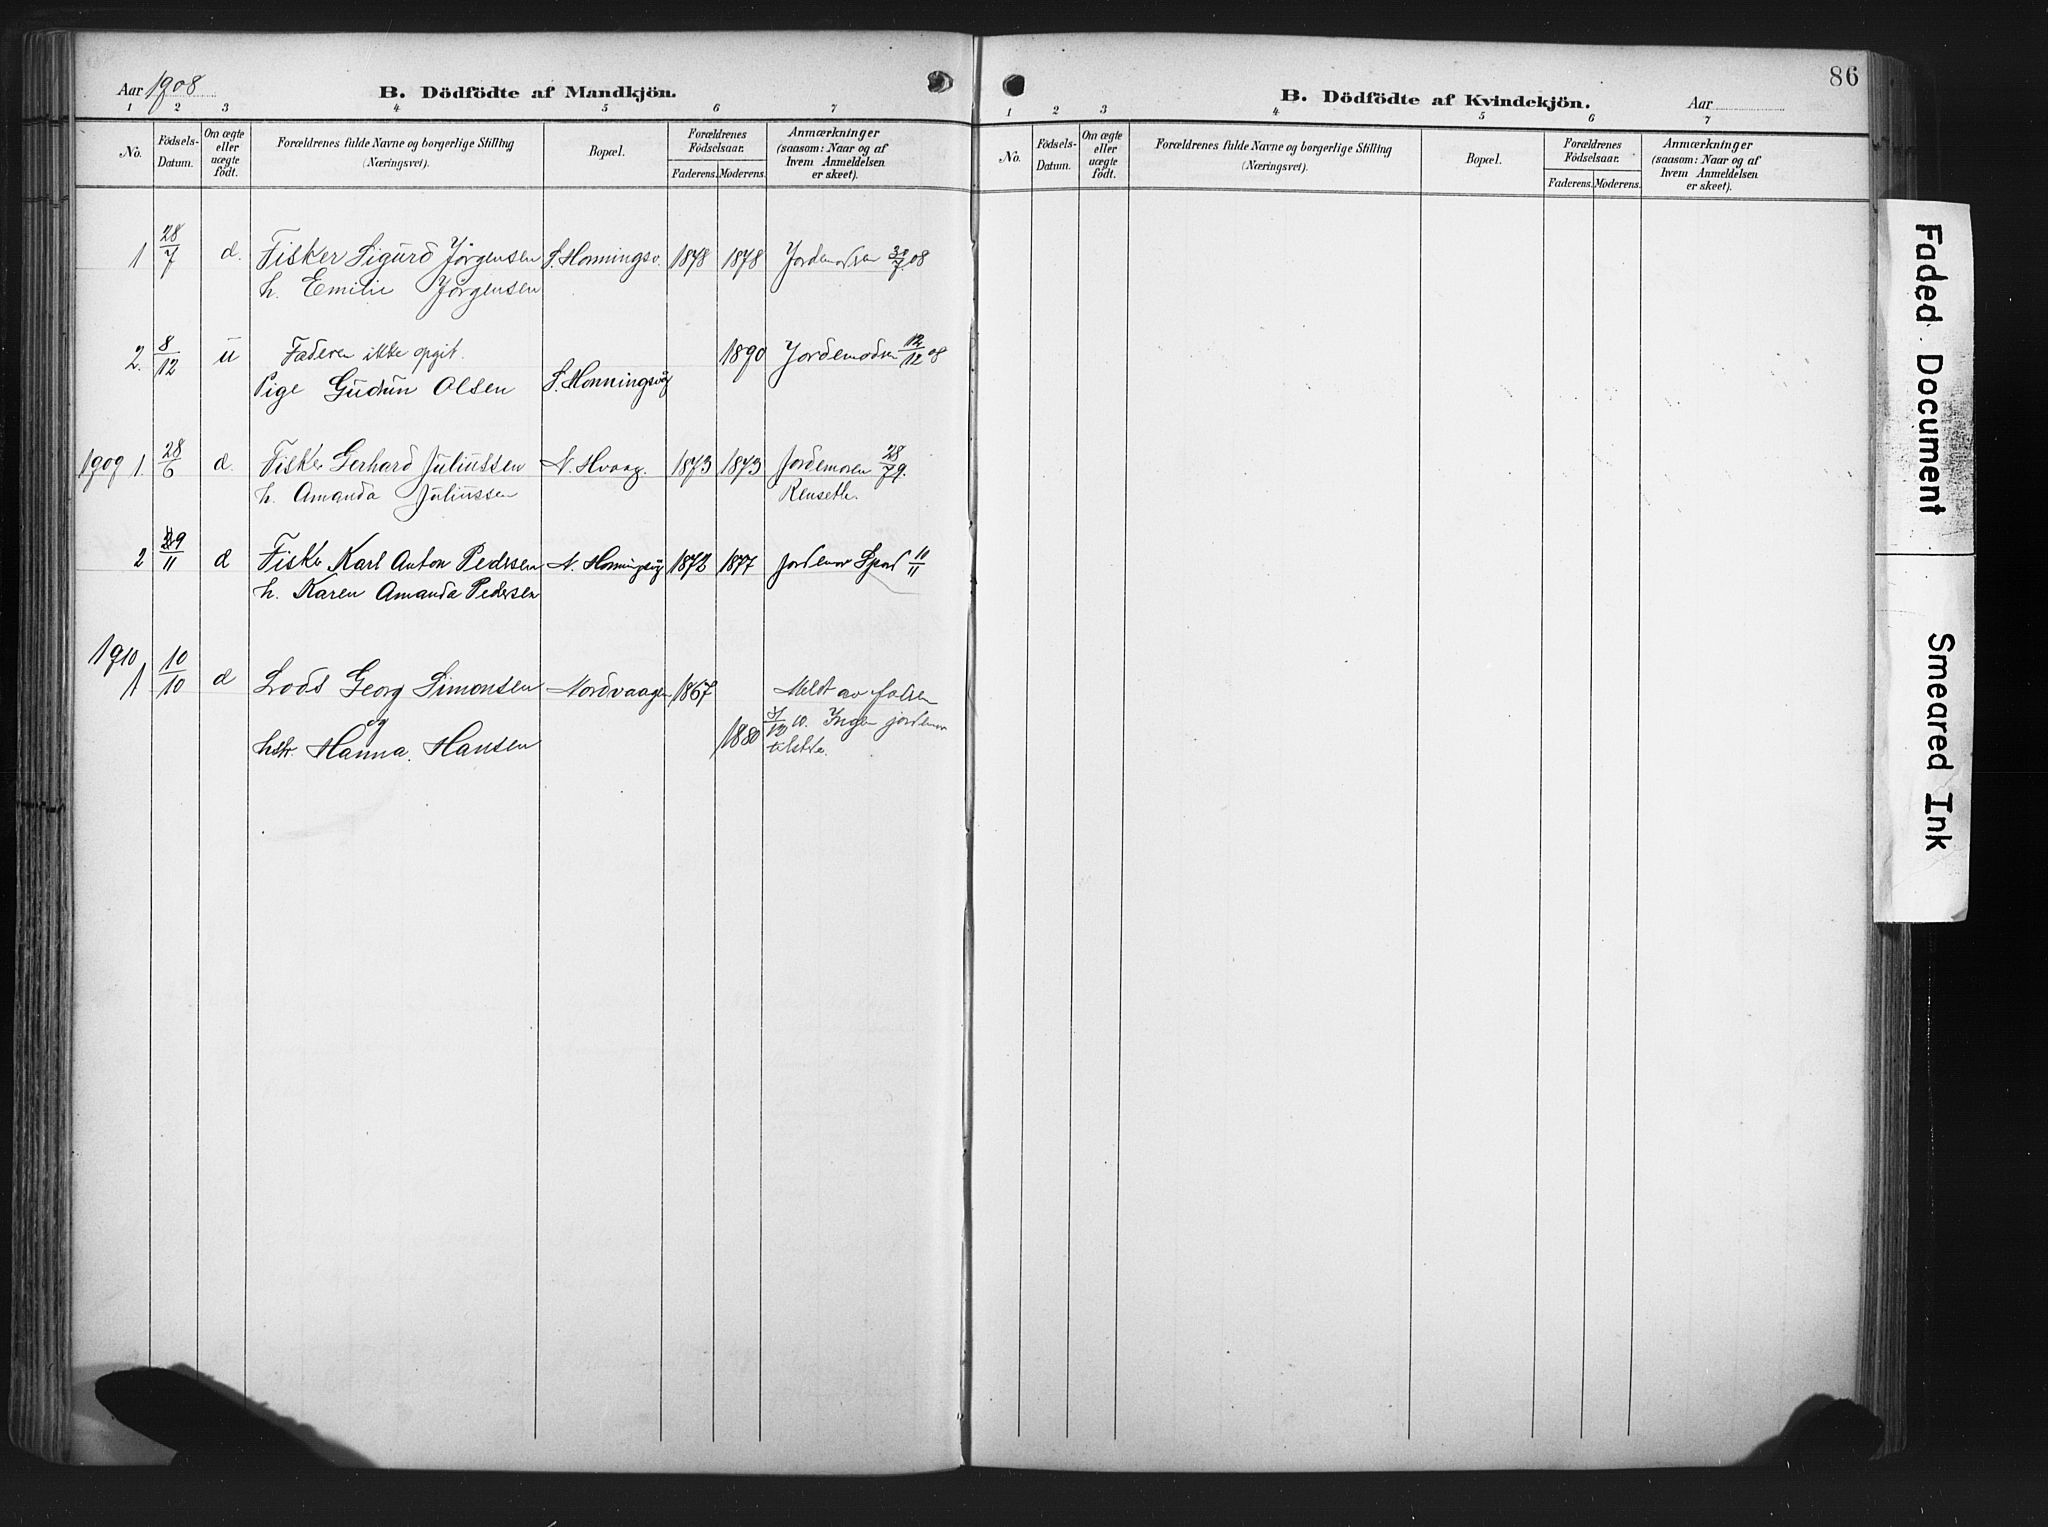 Aar 1908 B. Dödfödte af Mandkjön.
1 2 3 4 5 6 7
No. Födsels-Datum. Om ægte eller uægte födt. Forældrenes fulde Navne og borgerlige Stilling (Næringsvei). Bopæl. Forældrenes Födselsaar. Faderens. Moderens. Anmærkninger (saasom: Naar og af hvem Anmeldelsen er skeet).
1 28/7 d. Fisker Sigurd Jørgensen S. Honningsv. 1878 1878 Jordemoren 30/7 08
h. Emilie Jørgensen
2. 8/12 u Faderen ikke opgit. 1890 Jordemoden 12/12 08
Pige Gudrun Olsen S. Honningsvåg
1909 1. 28/6 d. Fisker Gerhard Juliussen N. Hvaag. 1873 1873 Jordemoren 28/7 9.
h. Amanda Juliussen Renseth.
2 29/11 d Fisker Karl Anton Pedersen N. Honningsvåg 1872 1877 Jordemor 10/11
h. Karen Amanda Pedersen
1910
1 10/10 d Lods Georg Simonsen Nordvaagen 1867 Meldt av faderen
og /12 10. Ingen jordemor
hstr. Hanna Hansen 1880 tilstede.
86
B. Dödfödte af Kvindekjön. Aar
1 2 3 4 5 6 7
No. Födsels-Datum. Om ægte eller uægte födt. Forældrenes fulde Navne og borgerlige Stilling (Næringsvei). Bopæl. Forældrenes Födselsaar. Faderens. Moderens. Anmærkninger (saasom: Naar og af hvem Anmeldelsen er skeet).
Faded Document
Smeared Ink